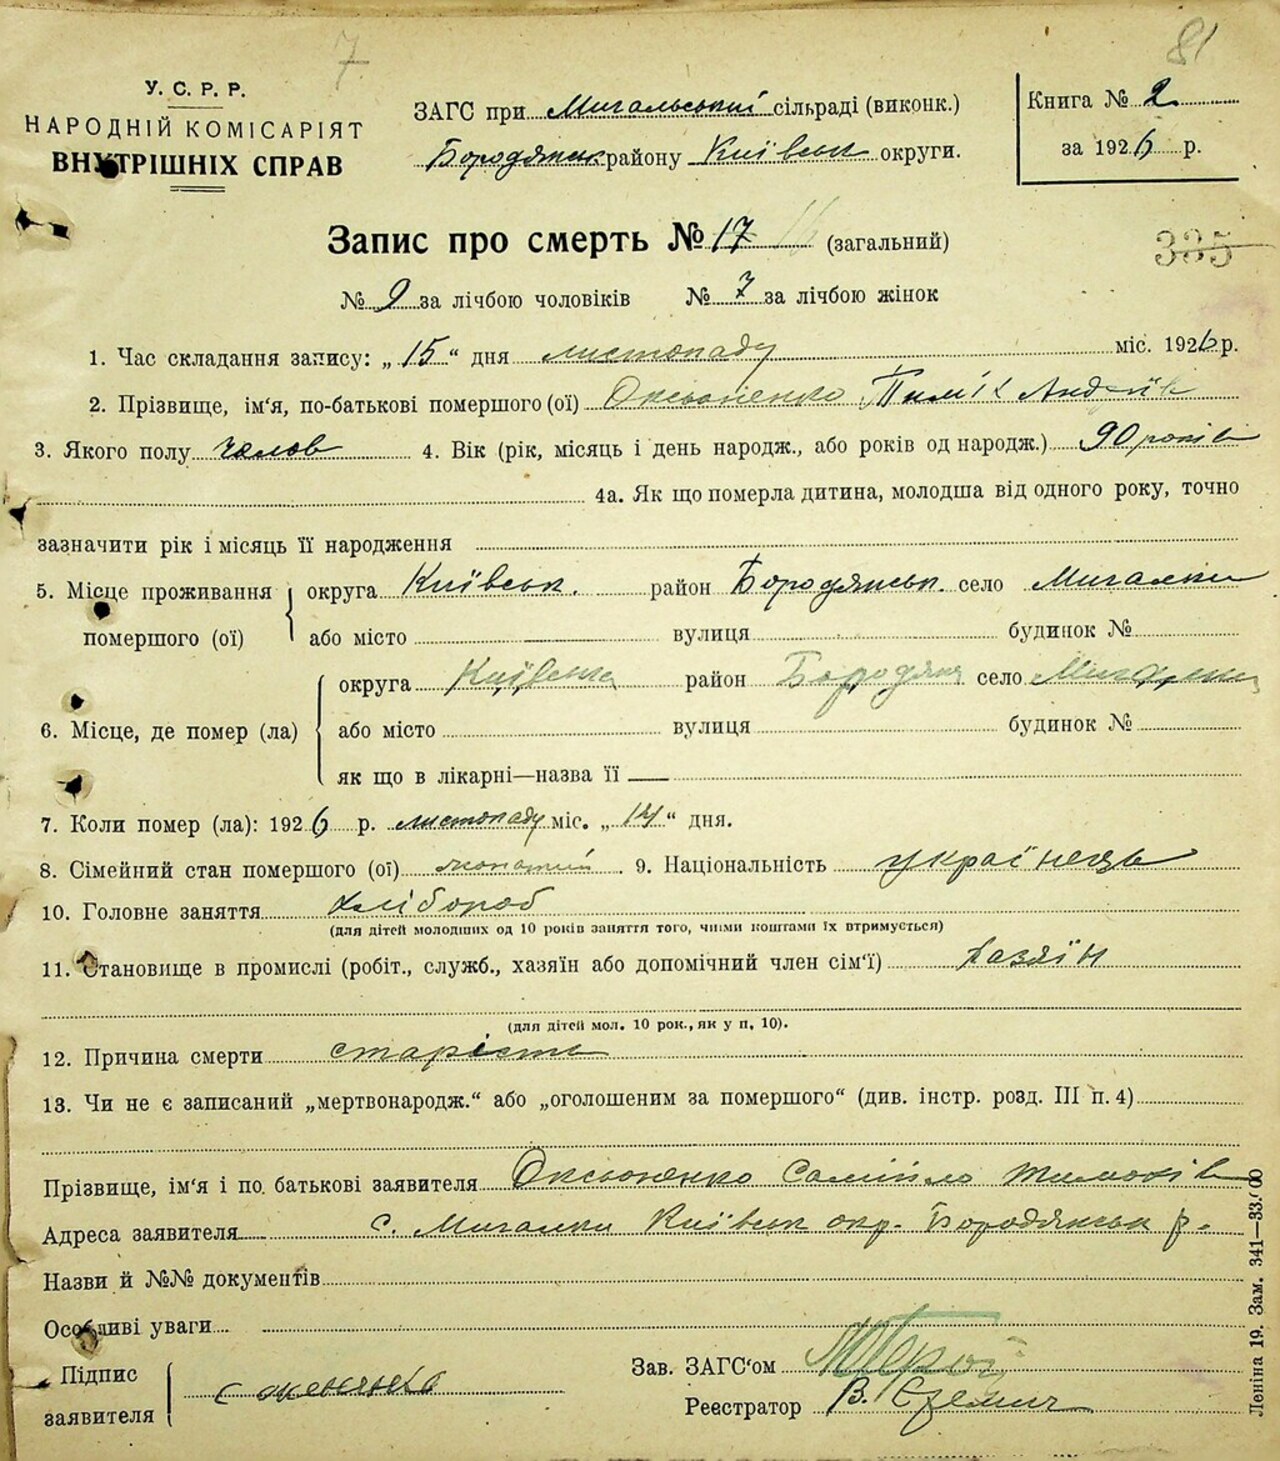 7 81
У. С. Р. Р.
НАРОДНІЙ КОМІСАРІЯТ
ВНУТРІШНІХ СПРАВ
ЗАГС при Мигальський сільраді (виконк.)
Бородянськ району Київськ округи.
Книга № 2
за 1926 р.
Запис про смерть № 17 16 (загальний)
335
№ 9 за лічбою чоловіків № 7 за лічбою жінок
1. Час складання запису: „15“ дня листопаду міс. 1926 р.
2. Прізвище, ім‘я, по-батькові помершого (ої) Оксьоненко Андріїв
3. Якого полу чолов 4. Вік (рік, місяць і день народж., або років од народж.) 90 років
4а. Як що померла дитина, молодша від одного року, точно
зазначити рік і місяць її народження
5. Місце проживання помершого (ої) округа Київськ. район Бородянськ. село Мигалки
або місто вулиця будинок №
6. Місце, де помер (ла) округа Київська район Бородянка село Мигалки
або місто вулиця будинок №
як що в лікарні—назва її
7. Коли помер (ла): 1926 р. листопаду міс. „14“ дня.
8. Сімейний стан помершого (ої) 9. Національність українець
10. Головне заняття хлібороб
(для дітей молодших од 10 років заняття того, чиїми коштами їх втримується)
11. Становище в промислі (робіт., служб., хазяїн або допомічний член сім‘ї) хазяїн
(для дітей мол. 10 рок., як у п, 10).
12. Причина смерти старість
13. Чи не є записаний „мертвонародж.“ або „оголошеним за помершого“ (див. інстр. розд. III п. 4)
Прізвище, ім‘я і по батькові заявителя Оксьоненко Самійло Тимохів
Адреса заявителя с. Мигалки Київськ окр. Бородянськ р.
Назви й №№ документів
Особливі уваги
Підпис заявителя
Зав. ЗАГС‘ом
Реєстратор В.
Леніна 19. Зам. 341—33.000